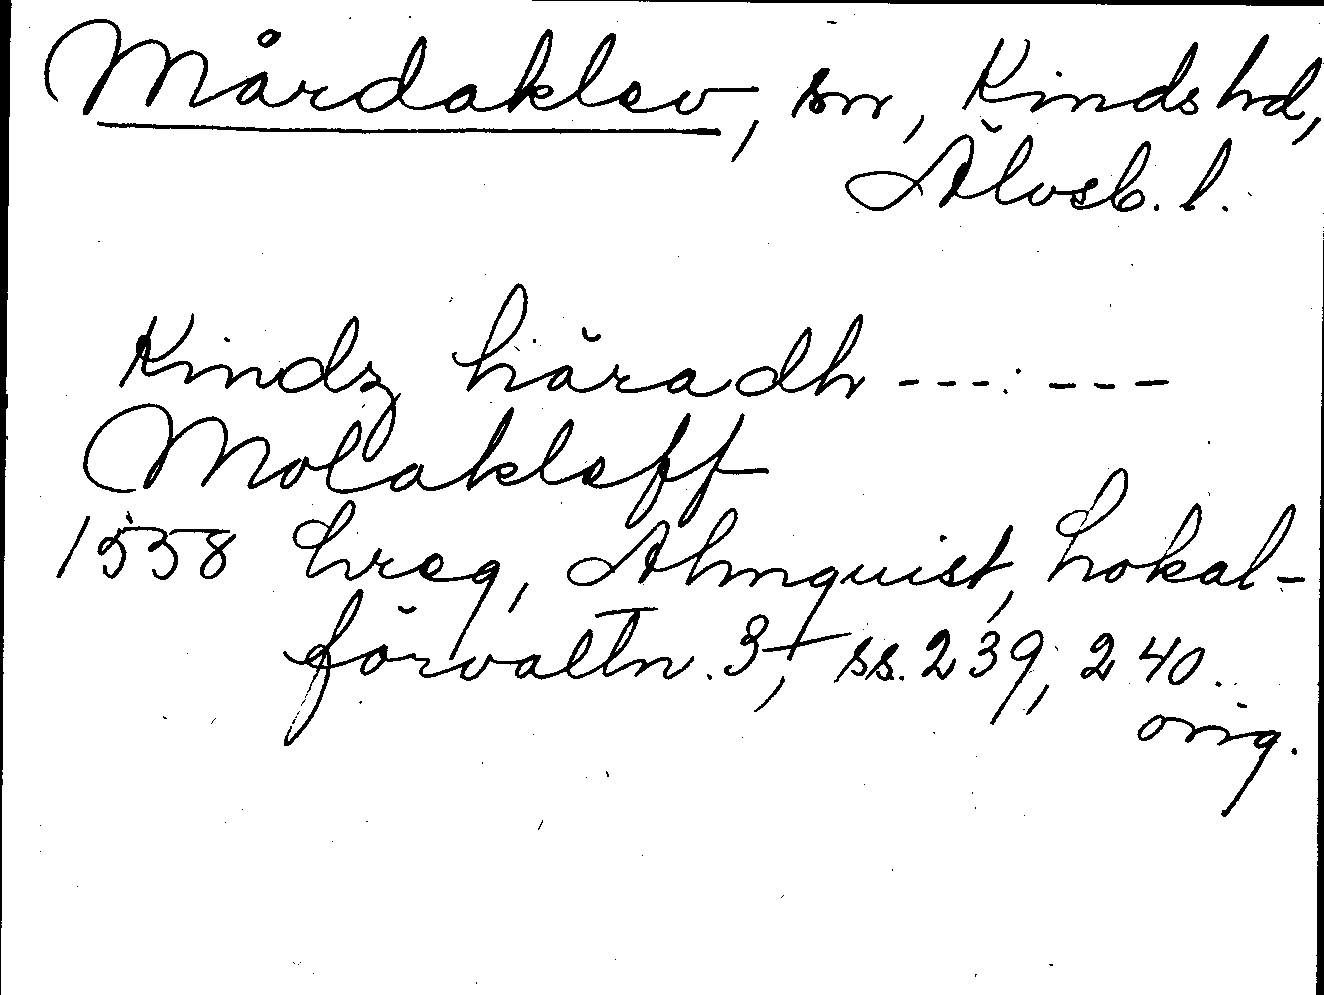 Mårdaklev, sn, Kinds hd,
Älvsb. l.
Kindz häradh --- ---
Molakleff
1558 hreg, Almquist, Lokal-
förvaltn. 3, ss. 239, 240.
orig.